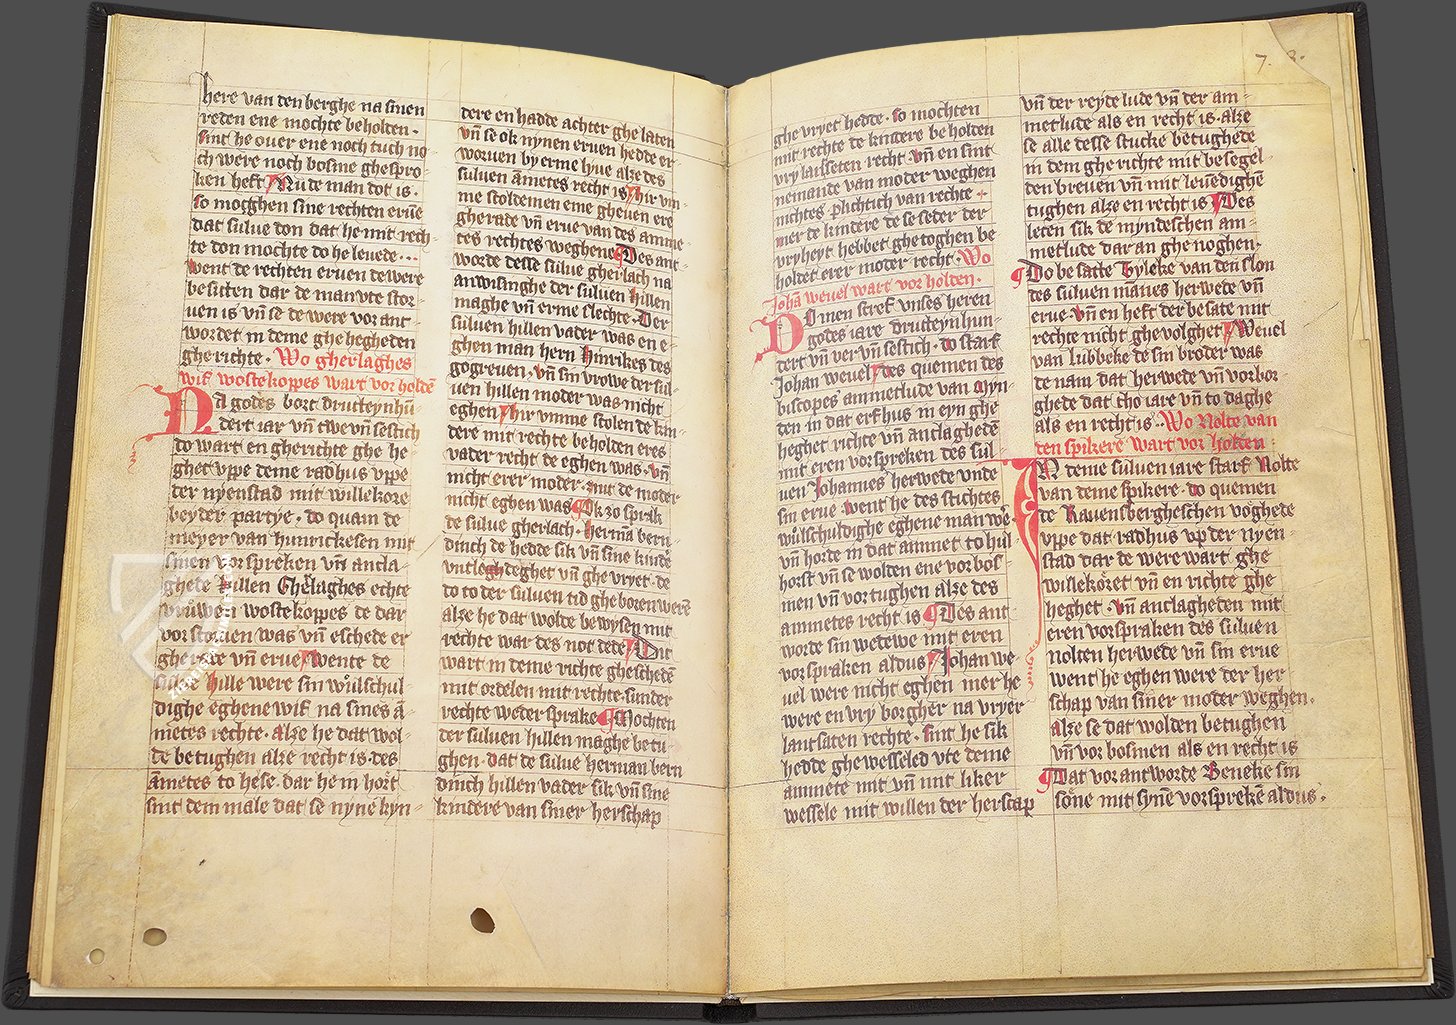 here van den berghe na sinen
reden ene mochte beholden ·
sint he ouer ene noch tuch no
ch were noch bosine ghespro⸗
ken heft Nu de man dot is ·
so moghen sine rechten eruē
dat sulue don dat he mit rech⸗
te don mochte do he leuede ···
went de rechten eruen de were
besitten dar de man vte stor⸗
uen is vn̄ se de were vor ant⸗
wordet in deme ghe hegheden
ghe richte · Wo gherlaghes
wif wostekoppes wart vor holdē
Na godes bort drutteynhū⸗
dert iar vn̄ twe vn̄ sestich
do wart en gherichte ghe he⸗
ghet vppe deme radhus vppe
der nyenstad mit willekore
beyder partye · do quam de
meyer van hunrickesen mit
sinen vorspreken vn̄ ancla⸗
ghede hillen Gherlaghes echte
vruwen wostekoppes de dar
vorstoruen was vn̄ eschede er
gherade vn̄ erue Wente de
sulue Hille were sin wulschul⸗
dighe eghene wif na sines ā⸗
metes rechte · Alze he dat wol⸗
de betughen alze recht is · des
āmetes to hese · dar he in hort
sint dem male dat se nyne kyn⸗
dere en hadde achter ghe laten
vn̄ se ok nynen eruen hedde er⸗
woruen by erme lyue alze des
suluen āmetes recht is Ihr vm⸗
me scolde men eme gheuen ere
gherade vn̄ erue van des amme⸗
tes rechtes weghene Des ant⸗
worde desse sulue gherlach na
anwisinghe der suluen hillen
maghe vn̄ erme slechte · Der
suluen hillen vader was en e⸗
ghen man hern Hinrikes des
gogreuen · vn̄ sin vrowe der sul⸗
uen hillen moder was nicht
eghen Ihr vmme scolen de kin⸗
dere mit rechte beholden eres
vader recht de eghen was · vn̄
nicht erer moder · mit de moder
nicht eghen was Ok zo sprak
de sulue gherlach · Hermā bern⸗
dinch de hedde sik vn̄ sine kindē
vntleghdeghet vn̄ ghe vryet · de
do to der suluen tid ghe boren werē
alze he dat wolde bewysen mit
rechte war des not dede Dit
wart in deme richte ghescheden
mit ordelen mit rechte · sunder
rechte wedersprake Mochten
der suluen hillen maghe betu⸗
ghen · dat de sulue herman bern
dinch hillen vader sik vn̄ sine
kindere van siner herschap
7. 3.
ghe vryet hedde · so mochten
mit rechte de kindere be holden
vry laisseten recht · vn̄ en sint
nemande van moder weghen
nichtes plichtich van rechte
mer de kindere de se seder der
vryheyt hebbet ghe toghen be
holdet erer moder recht · Wo
Johā weuel wart vor holden ·
Do men scref vnses heren
godes iare drutteynhun⸗
dert vn̄ ver vn̄ sestich · do starf
Johan weuel des quemen des
biscopes ammetlude van myn⸗
den in dat erfhus in eyn ghe
heghet richte vn̄ anclaghedē
mit eren vorspreken des sul⸗
uen Johannes herwede vnde
sin erue went he des stichtes
wulschuldighe eghene man we⸗
vn̄ horde in dat ammet to hul
horst vn̄ se wolden ene vorbos⸗
men vn̄ vortughen alze des
ammetes recht is Des ant⸗
worde sin wedewe mit eren
vorspraken aldus Johan we⸗
uel were nicht eghen mer he
were en vry borgher na vryer
lantsaten rechte · sint he sik
hedde ghe wesseled vte deme
ammete mit vn̄ mit liker
wessele mit willen der herscap
vn̄ der reyde lude vn̄ der am⸗
metlude als en recht is · alze
se alle desse stucke betughede
in dem ghe richte mit be segel⸗
den breuen vn̄ mit leuēdighē
tughen alze en recht is Des
leten sik de myndeschen am⸗
metlude dar an ghe noghen ·
Do be satte Tyleke van den slon
des suluen mānes herwede vn̄
erue · vn̄ en heft der besate mit
rechte nicht ghe volghet Weuel
van lubbeke de sin broder was
de nam dat herwede vn̄ vorbor⸗
ghede dat tho iare vn̄ to daghe
als en recht is · Wo Nolte van
den spikere wart vor holden ·
IN deme suluen iare starf Nolte
van deme spikere · do quemen
de Rauensbergheschen voghede
vppe dat radhus vp der nyen⸗
stad dar de were wart ghe
willekoret vn̄ en richte ghe
heghet · vn̄ anclagheden mit
eren vorspraken des suluen
nolten herwede vn̄ sin erue
went he eghen were der her
schap van siner moder weghen ·
alze se dat wolden betughen
vn̄ vor bosmen als en recht is
Dat vor antworde Beneke sin
sone mit synē vorsprekē aldus ·